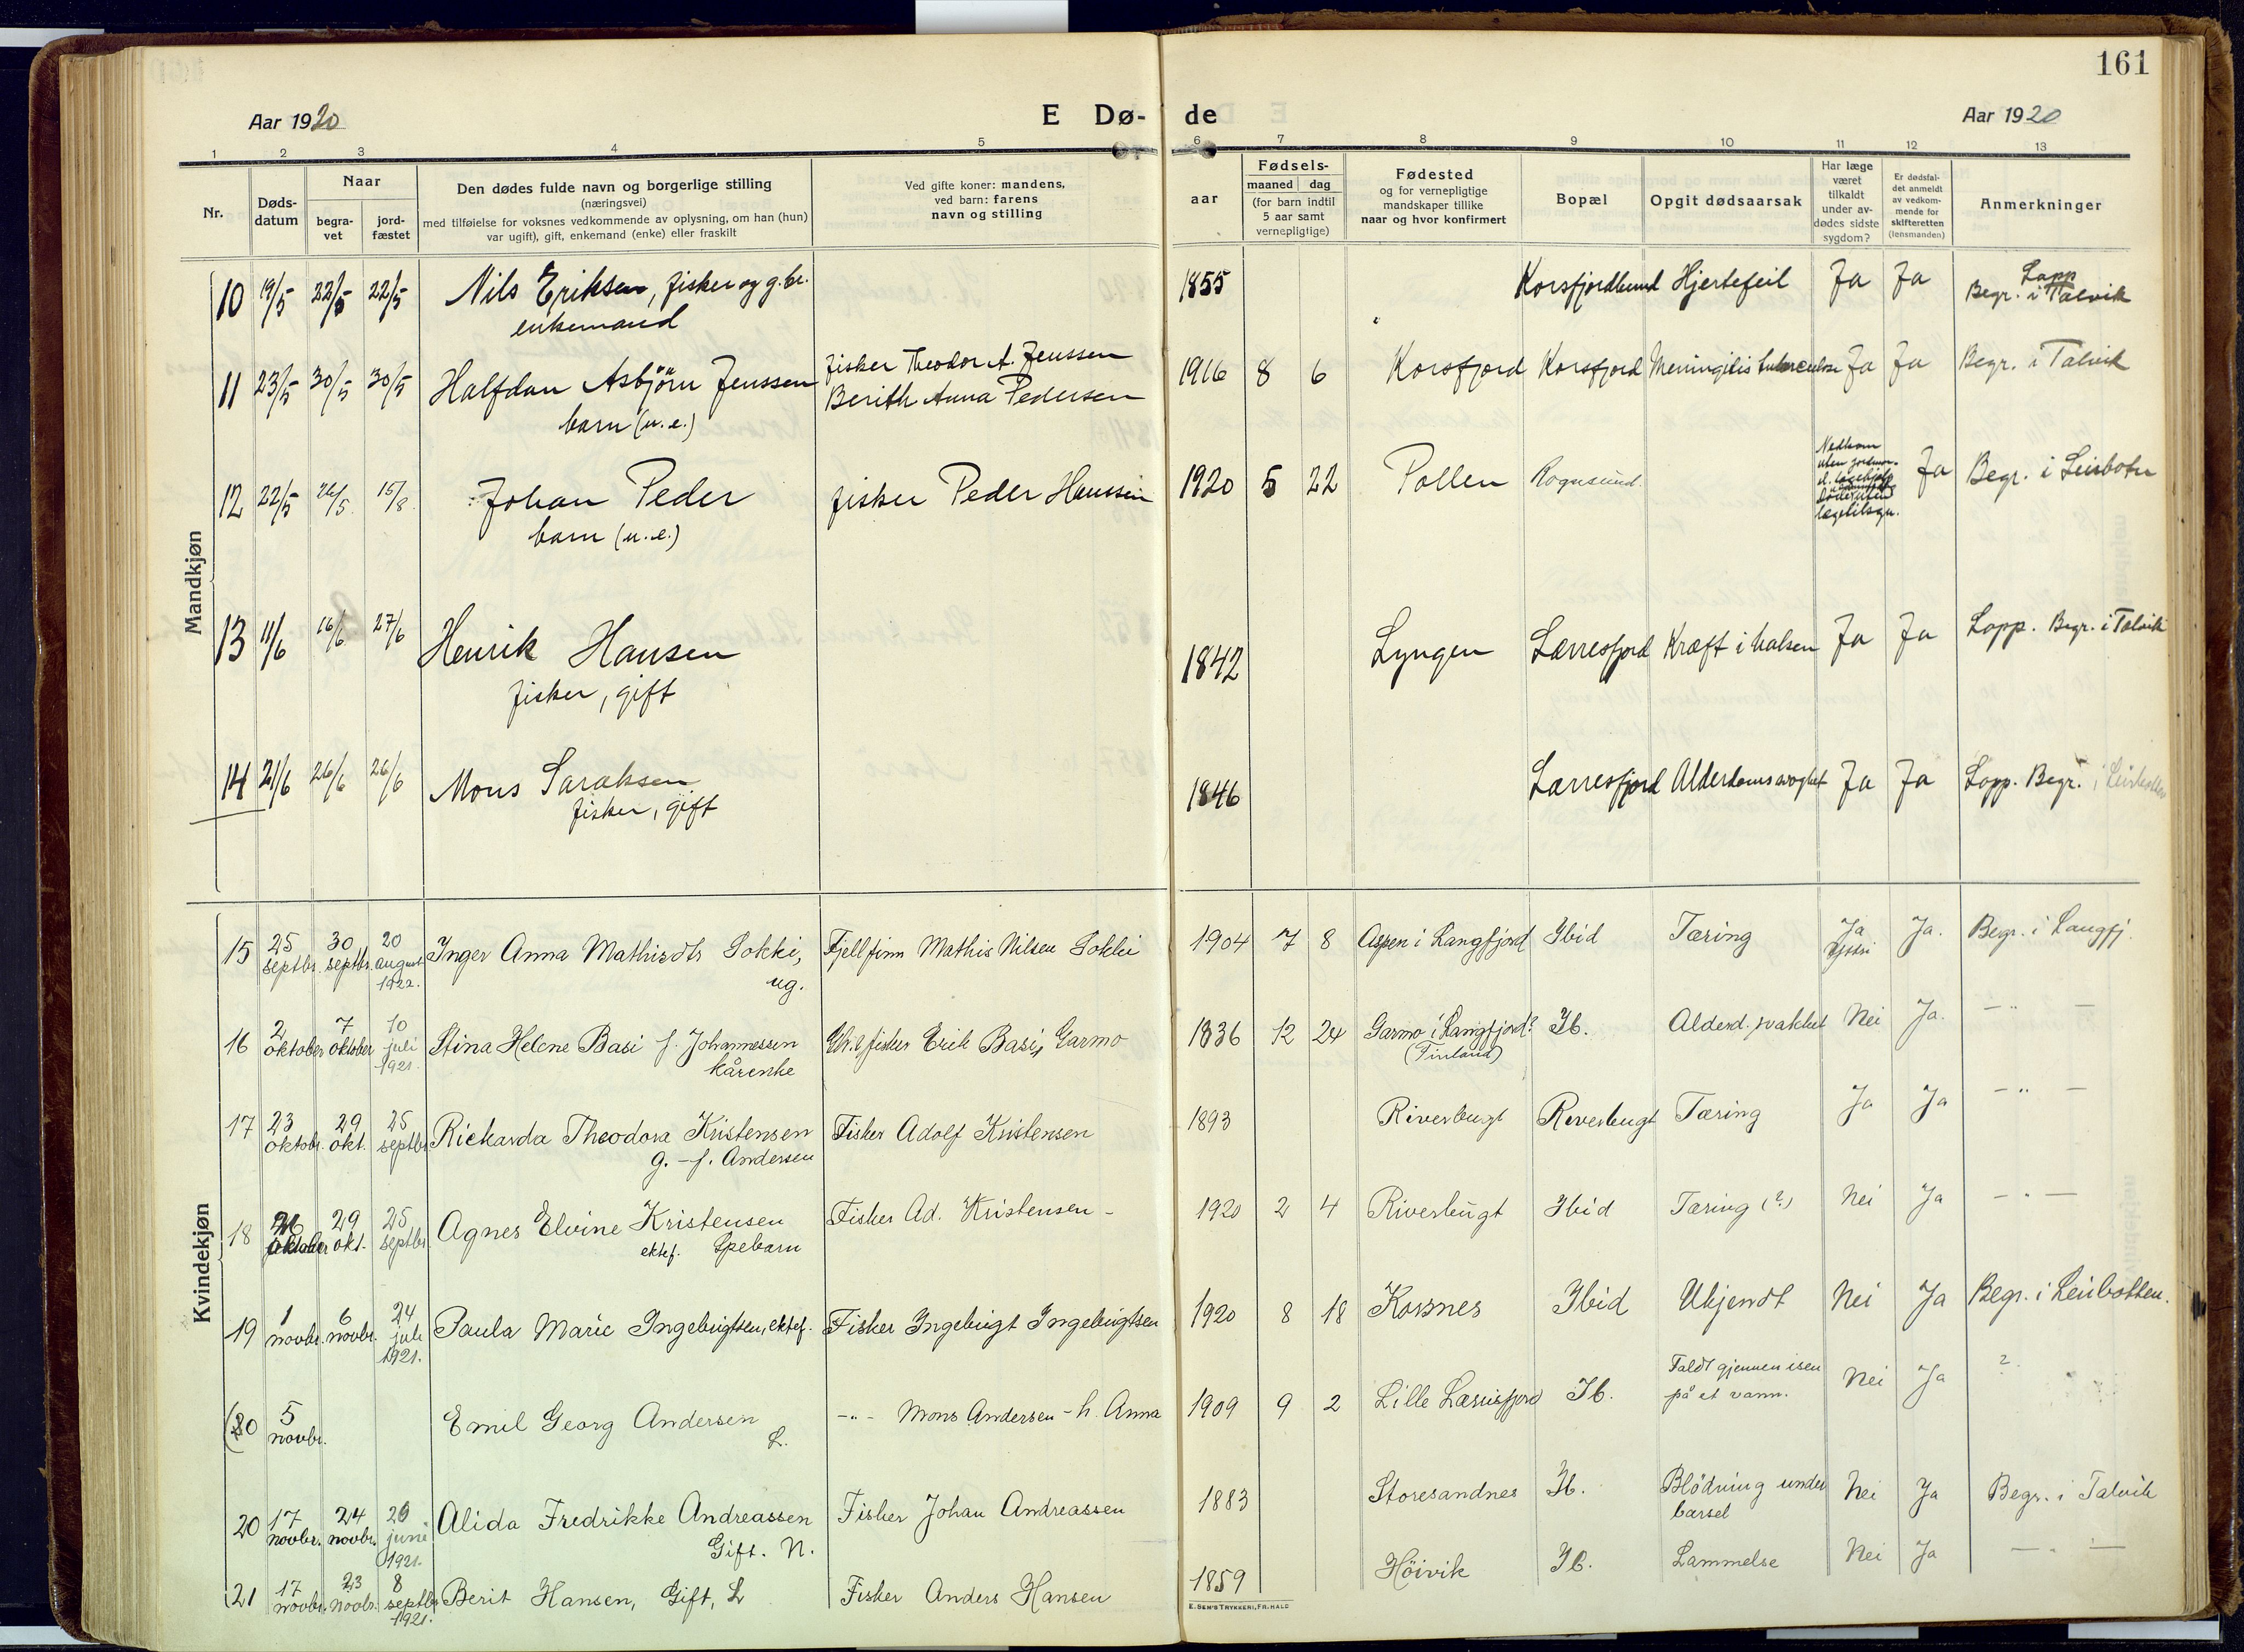 161
Aar 1920
E Dø-
de
Aar 1920
1 2 3 4 5 6 7 8 9 10 11 12 13
Nr.
Døds-
datum
Naar
begra-
vet
jord-
fæstet
Den dødes fulde navn og borgerlige stilling
(næringsvei)
med tilføielse for voksnes vedkommende av oplysning, om han (hun)
var ugift), gift, enkemand (enke) eller fraskilt
Ved gifte koner: mandens,
ved barn: farens
navn og stilling
aar
Fødsels-
maaned dag
(for barn indtil
5 aar samt
vernepligtige)
Fødested
og for vernepligtige
mandskaper tillike
naar og hvor konfirmert
Bopæl
Opgit dødsaarsak
Har læge
været
tilkaldt
under av-
dødes sidste
sygdom?
Er dødsfal-
det anmeldt
av vedkom-
mende for
skifteretten
(lensmanden)
Anmerkninger
Mandkjøn
10 19/5 22/5 22/5 Nils Eriksen, fisker og g.br.
enkemand
1855 Korsfjordbund Hjertefeil Ja Ja Lapp
Begr. i Talvik
11 23/5 30/5 30/5 Halfdan Asbjörn Jenssen
barn (u.e.)
fisker Theodor A. Jenssen
Berith Anna Pedersen
1916 8 6 Korsfjord Korsfjord Meningitis tuberculosa Ja Ja Begr. i Talvik
12 22/5 26/5. 15/8. Johan Peder
barn (u.e.)
fisker Peder Hanssen
1920 5 22 Pollen Rognsund.
Nedkom
uten jordmor-
el. lægehjelp
Döde uten
lægetilsyn.
Ja Begr. i Leirbotn
13 11/6 16/6 27/6 Henrik Hansen
fisker, gift
1842 Lyngen Lærresfjord Kræft i halsen Ja Ja Lapp. Begr. i Talvik
14 21/6 26/6 26/6 Mons Saraksen
fisker, gift
1846 Lærresfjord Alderdomssvaghet Ja Ja Lapp. Begr. i Leirbotten
Kvindekjøn
15 25 septbr. 30 septbr. 20 august 1922. Inger Anna Mathisdtr Sokki,
ug.
Fjellfinn Mathis Nilsen Sokki
1904 7 8 Aspen i Langfjord Ibid Tæring Ja Ja. Begr. i Langfj.
16 2 oktober 7 oktober 10 juli 1921. Stina Helene Basi f. Johannessen
kårenke
Gbr. & fisker Erik Basi, Garmo
1836 12 24 Garmo i Langfjord?
(Finland)
Ib. Alderd. svakhet Nei Ja. — " —
17 23 oktobr. 29 okt. 25 septbr. Rickarda Theodora Kristensen
g. - f. Andersen
Fisker Adolf Kristensen
1893 Riverbugt Reverbugt Tæring Ja Ja — " —
18 oktober 29 okt. 25 septbr. Agnes Elvine Kristensen
ektef. Spebarn
Fisker Ad. Kristensen -
1920 2 4 Riverbugt Ibid Tæring (?) Nei Ja — " —
19 1 novbr. 6 novbr. 24 juli 1921. Paula Marie Ingebrigtsen, ektef.
Fisker Ingebrigt Ingebrigtsen
1920 8 18 Korsnes Ibid Ukjendt Nei Ja Begr. i Leirbotten.
(20 5 novbr. Emil Georg Andersen
L.
-"- Mons Andersen - h. Anna
1909 9 2 Lille Lærrisfjord Ib. Faldt gjennem isen
på et vann.
Nei Ja ?
20 17 novbr. 24 novbr. 20 juni 1921. Alida Fredrikke Andreassen
Gift. N.
Fisker Johan Andreassen
1883 Storesandnes Ib. Blödning under
barsel
Nei Ja Begr. i Talvik
21 17 novbr. 23 novbr. 8 septbr 1921. Berit Hansen, Gift, L
Fisker Anders Hansen
1859 Höivik Ib. Lammelse Nei Ja — " —
E. SEM'S TRYKKERI, FR.HALD